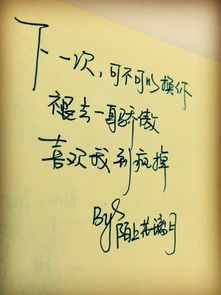 下一次，可不可以换你
褪去一身骄傲
喜欢我到疯掉
By：陌上